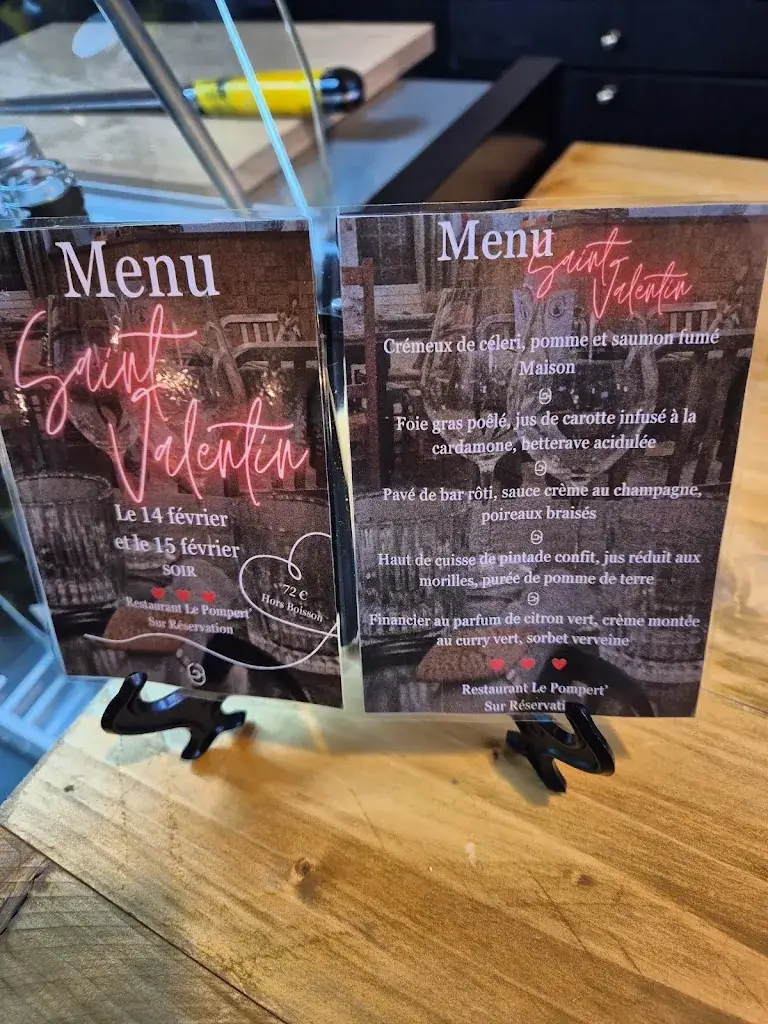 Menu
Saint
Valentin
Le 14 février
et le 15 février
SOIR
72 €
Hors Boisson
Restaurant Le Pompert'
Sur Réservation
Menu
Saint
Valentin
Crémeux de céleri, pomme et saumon fumé
Maison
Foie gras poêlé, jus de carotte infusé à la
cardamone, betterave acidulée
Pavé de bar rôti, sauce crème au champagne,
poireaux braisés
Haut de cuisse de pintade confit, jus réduit aux
morilles, purée de pomme de terre
Financier au parfum de citron vert, crème montée
au curry vert, sorbet verveine
Restaurant Le Pompert'
Sur Réservati